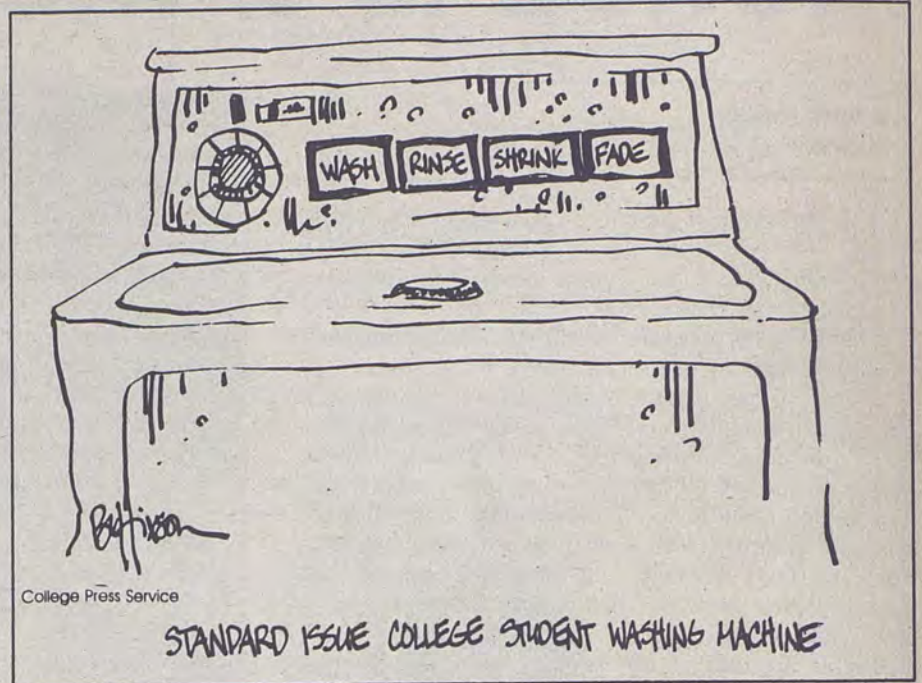 WASH RINSE SHRINK FADE
College Press Service
STANDARD ISSUE COLLEGE STUDENT WASHING MACHINE